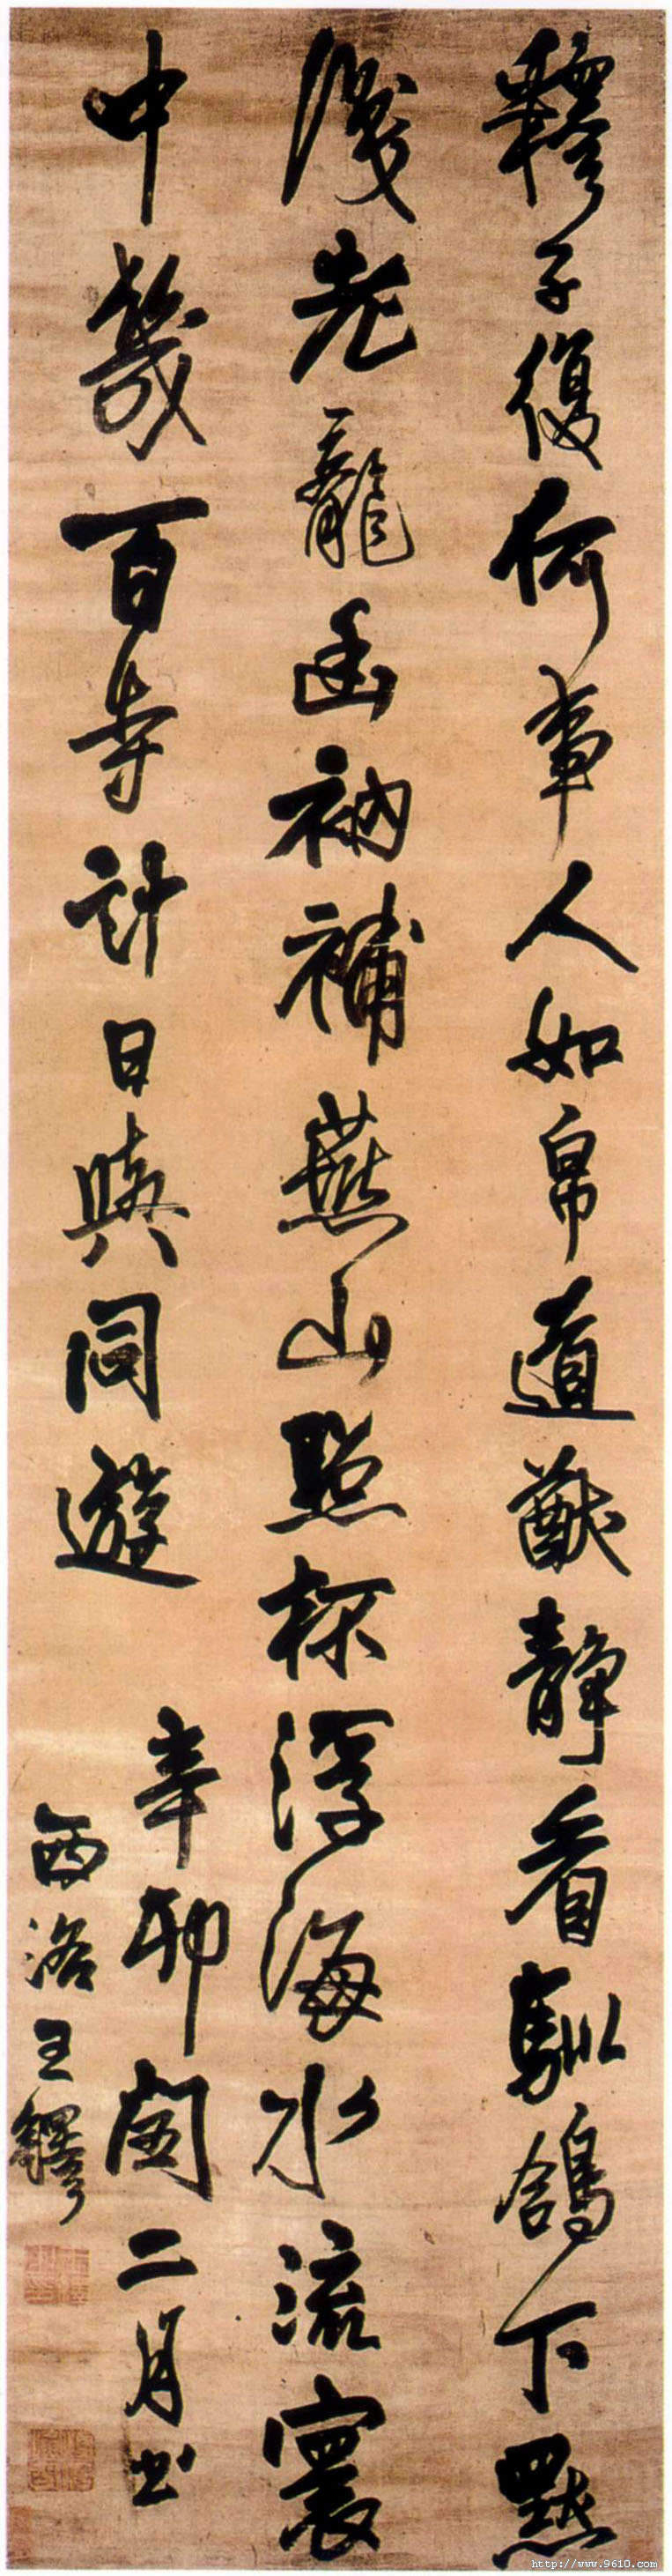 釋子復何事人如帛道猷靜看馴鴿下默
識老龍幽衲補燕山照杯浮海水流寰
中幾百寺計日與同遊 辛卯閏二月書
西洛王鐸
http://www.9610.com